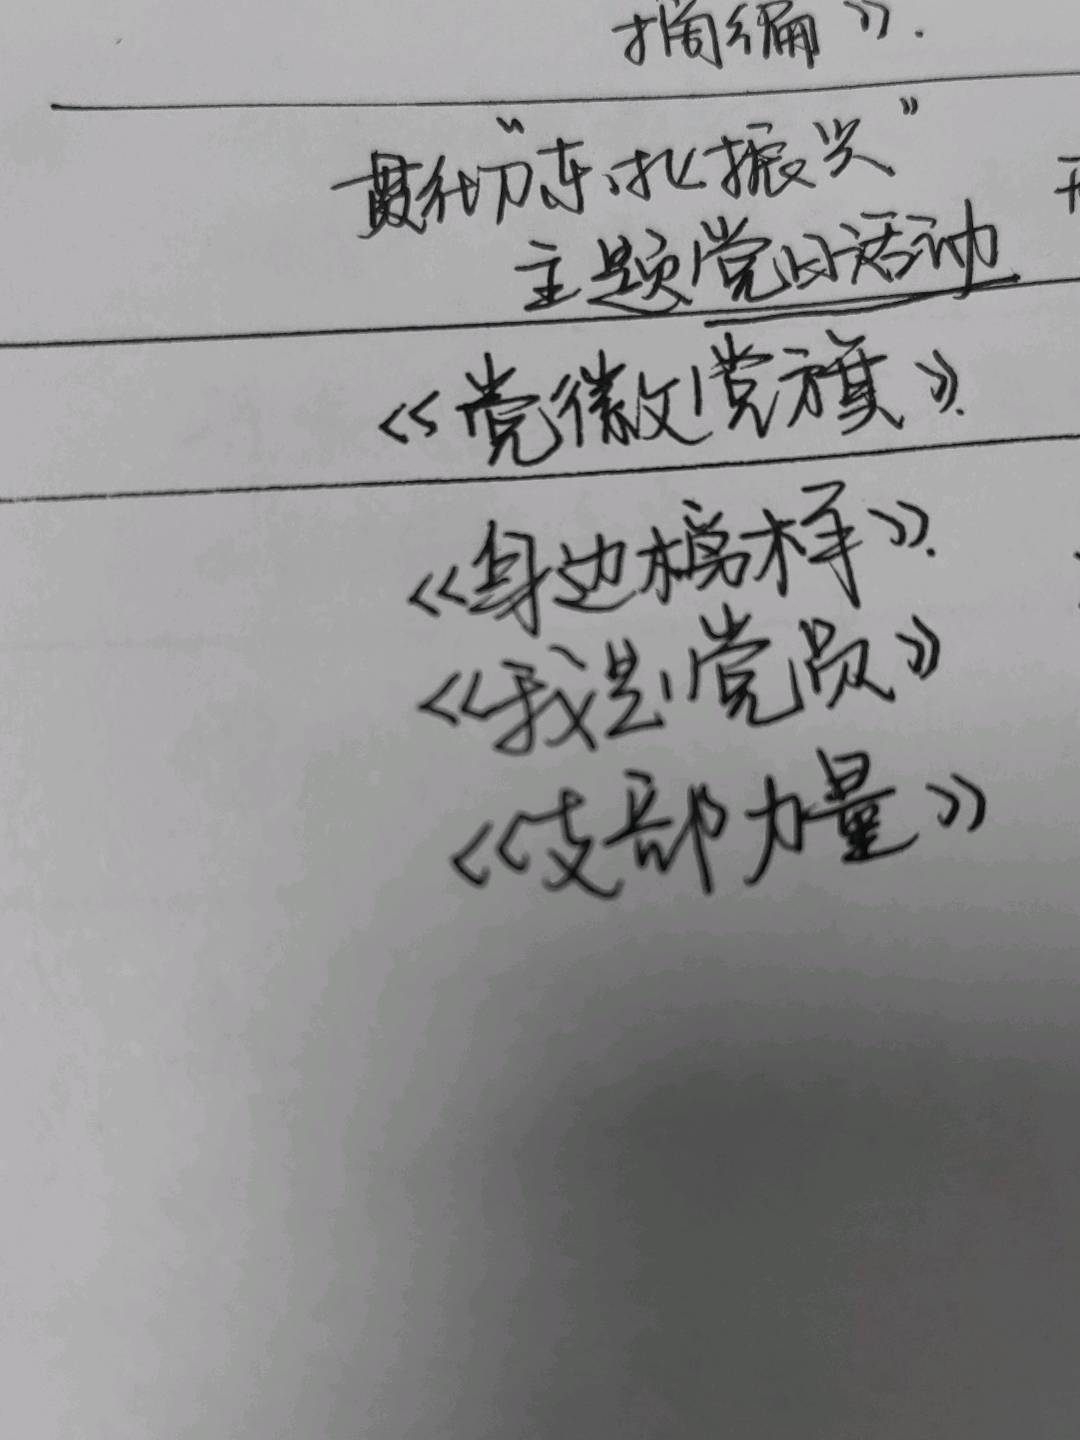 摘编》.
贯彻“东北振兴”
主题党日活动
《党徽党旗》.
《身边榜样》.
《我是党员》
《支部力量》